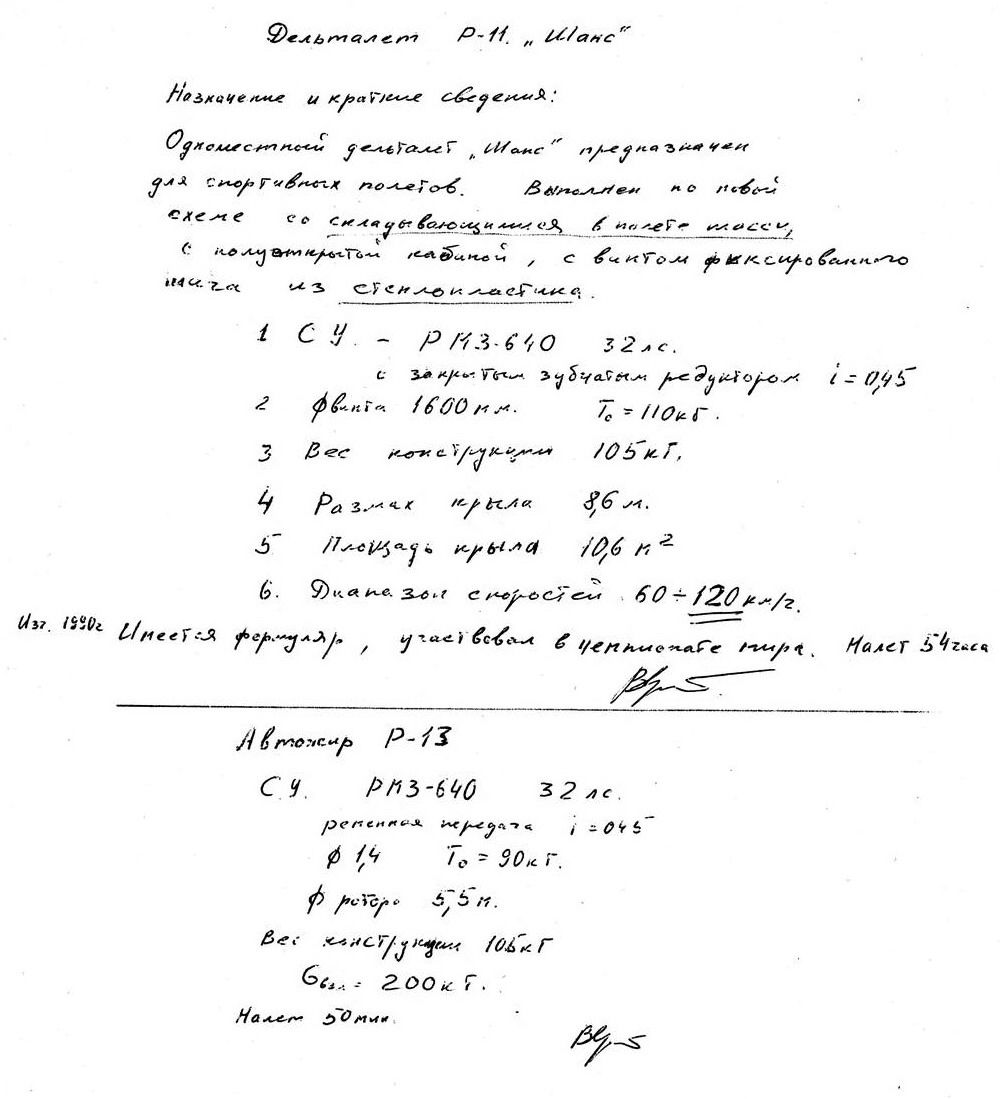 Дельталет Р-11. „Шанс"
Назначение и краткие сведения:
Одноместный дельталет „Шанс" предназначен
для спортивных полетов. Выполнен по новой
схеме со складывающимися в полете шасси,
с полуоткрытой кабиной, с винтом фиксированного
шага из стеклопластика.
1 СУ. – РМЗ-640 32 лс.
с закрытым зубчатым редуктором i = 0,45
2 ϕ винта 1600 мм. T₀ = 110 кг.
3 Вес конструкции 105 кг.
4 Размах крыла 8,6 м.
5 Площадь крыла 10,6 м²
6. Диапазон скоростей 60 ÷ 120 км/г.
Изг. 1990г Имеется формуляр, участвовал в чемпионате мира. Налет 54 часа
Автожир Р-13
СУ. РМЗ-640 32 лс.
ременная передача i = 045
ϕ 1,4 T₀ = 90 кг.
ϕ ротора 5,5 м.
Вес конструкции 105 кг
Gвзл. = 200 кг.
Налет 50 мин.